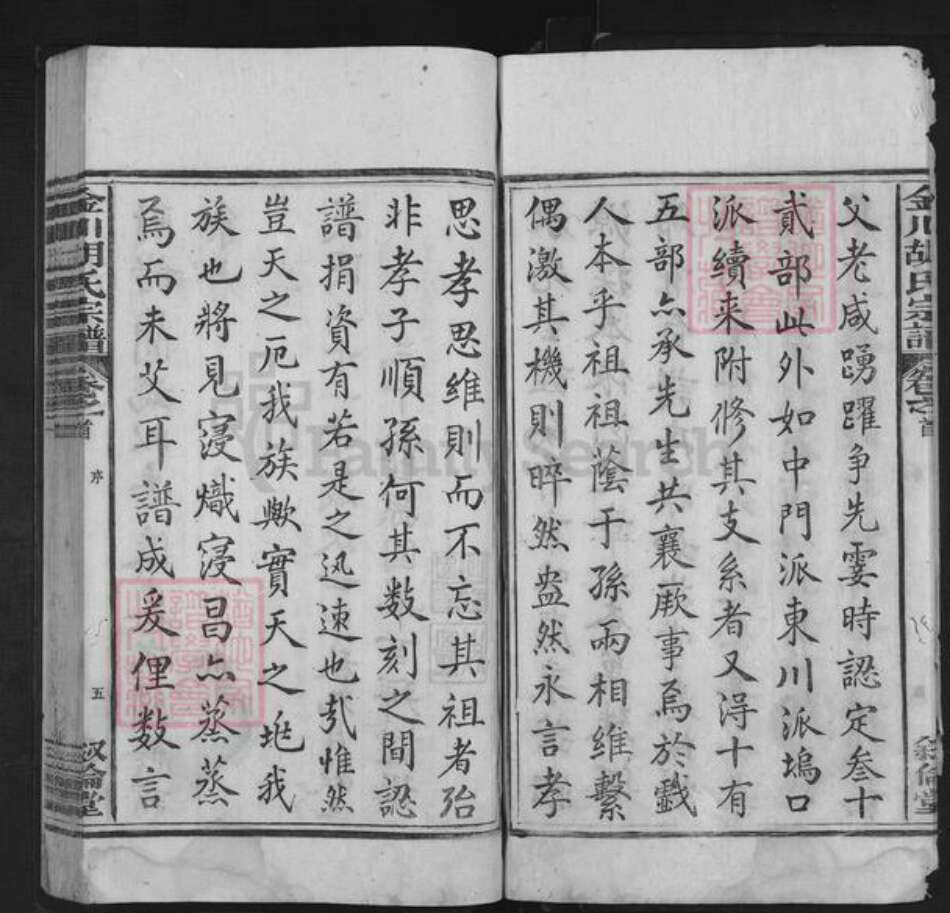 金川胡氏宗譜 卷之首 敘倫堂
父老咸踴躍争先霎時認定叁十
貳部此外如中門派東川派塢口
派續来附修其支系者又淂十有
五部亦承先生共襄厥事焉於戲
人本乎祖祖蔭于孫兩相維繫
偶激其機則睟然盎然永言孝
思孝思維則而不忘其祖者殆
非孝子順孫何其数刻之間認
譜捐資有若是之迅速也㢤惟然
豈天之厄我族歟實天之玭我
族也將見寖熾寖昌亦蒸蒸
焉而未艾耳譜成爰俚数言
金川胡氏宗譜 卷之首 序 五 敘倫堂
FamilySearch